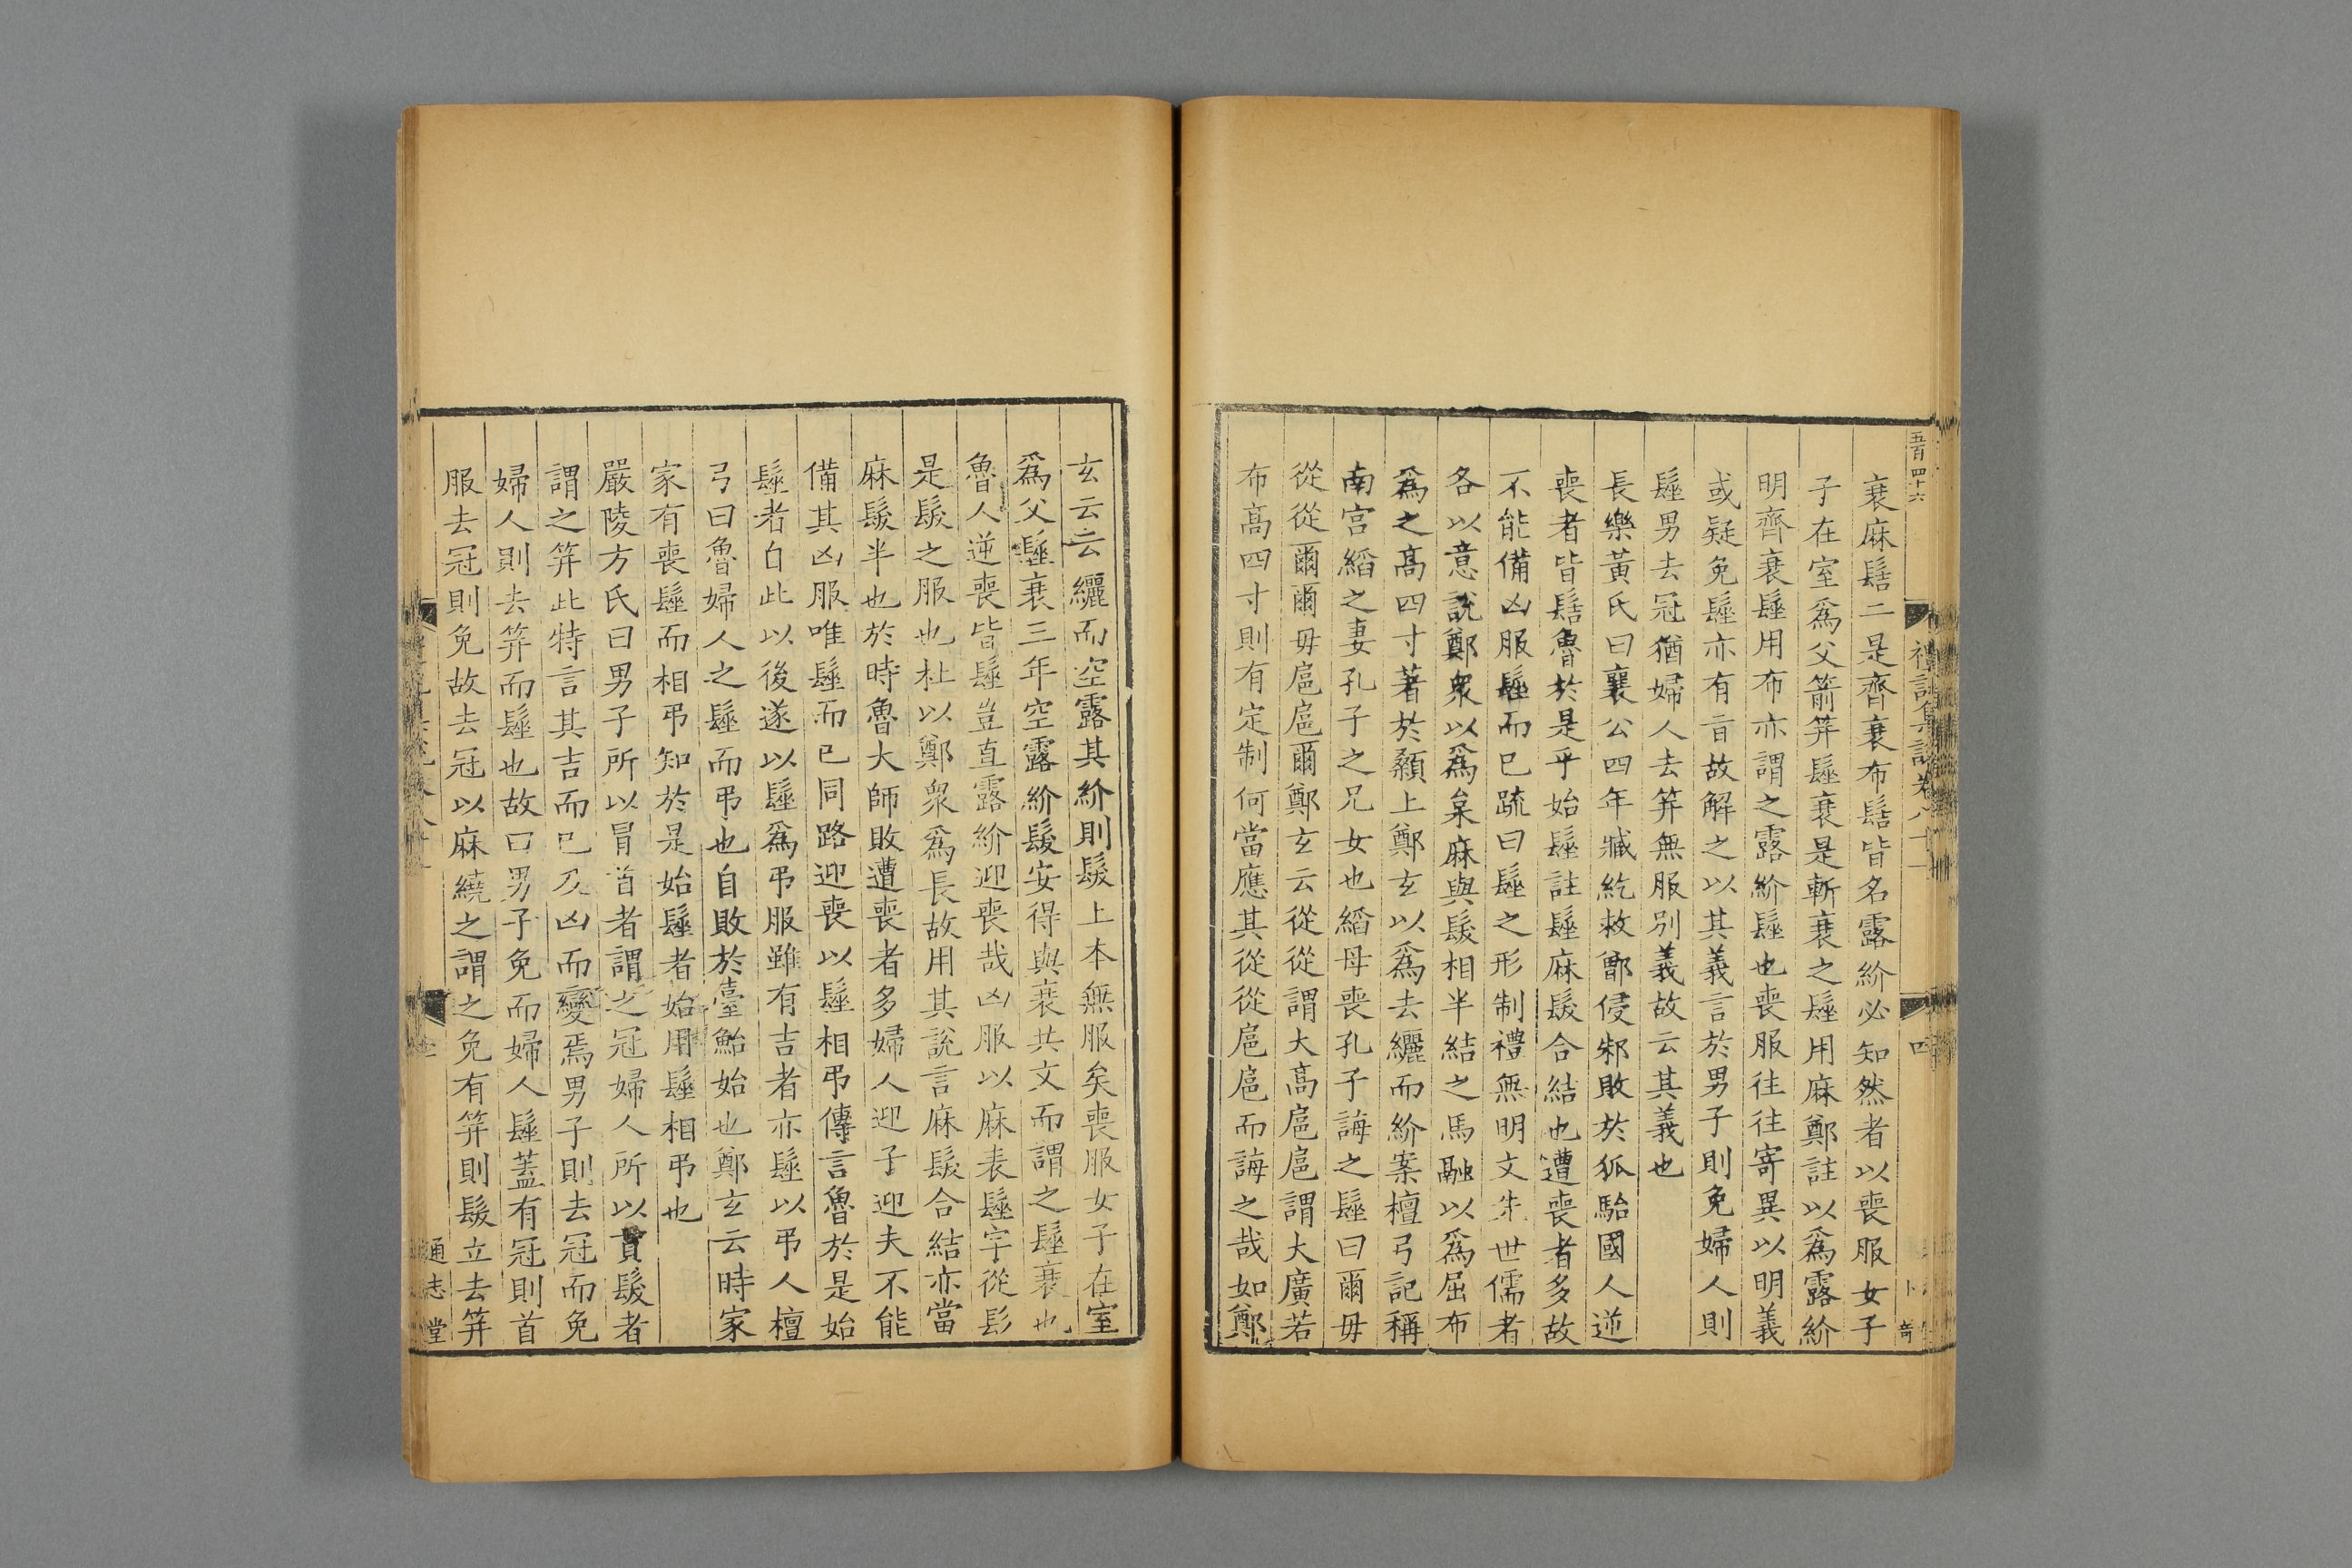 五百四十六
禮記集說卷八十一
四
衰麻髺二是齊衰布髺皆名露紒必知然者以喪服女子
子在室爲父箭筓髽衰是斬衰之髽用麻鄭註以爲露紒
明齊衰髽用布亦謂之露紒髽也喪服往往寄異以明義
或疑免髽亦有旨故解之以其義言於男子則免婦人則
髽男去冠猶婦人去筓無服別義故云其義也
長樂黃氏曰襄公四年臧紇救鄫侵邾敗於狐駘國人逆
喪者皆髺魯於是乎始髽註髽麻髮合結也遭喪者多故
不能備凶服髽而已疏曰髽之形制禮無明文先世儒者
各以意說鄭衆以爲枲麻與髮相半結之馬融以爲屈布
爲之高四寸著於顙上鄭玄以爲去纚而紒案檀弓記稱
南宮縚之妻孔子之兄女也縚母喪孔子誨之髽曰爾毋
從從爾爾毋扈扈爾鄭玄云從從謂大高扈扈謂大廣若
布高四寸則有定制何當應其從從扈扈而誨之哉如鄭
玄云去纚而空露其紒則髮上本無服矣喪服女子在室
爲父髽衰三年空露紒髮安得與衰共文而謂之髽衰也
魯人逆喪皆髽豈直露紒迎喪哉凶服以麻表髽字從髟
是髮之服也杜以鄭衆爲長故用其說言麻髮合結亦當
麻髮半也於時魯大師敗遭喪者多婦人迎子迎夫不能
備其凶服唯髽而已同路迎喪以髽相弔傳言魯於是始
髽者自此以後遂以髽爲弔服雖有吉者亦髽以弔人檀
弓曰魯婦人之髽而弔也自敗於臺鮐始也鄭玄云時家
家有喪髽而相弔知於是始髽者始用髽相弔也
嚴陵方氏曰男子所以冒首者謂之冠婦人所以貫髮者
謂之筓此特言其吉而已及凶而變焉男子則去冠而免
婦人則去筓而髽也故曰男子免而婦人髽蓋有冠則首
服去冠則免故去冠以麻繞之謂之免有筓則髮立去筓
通志堂